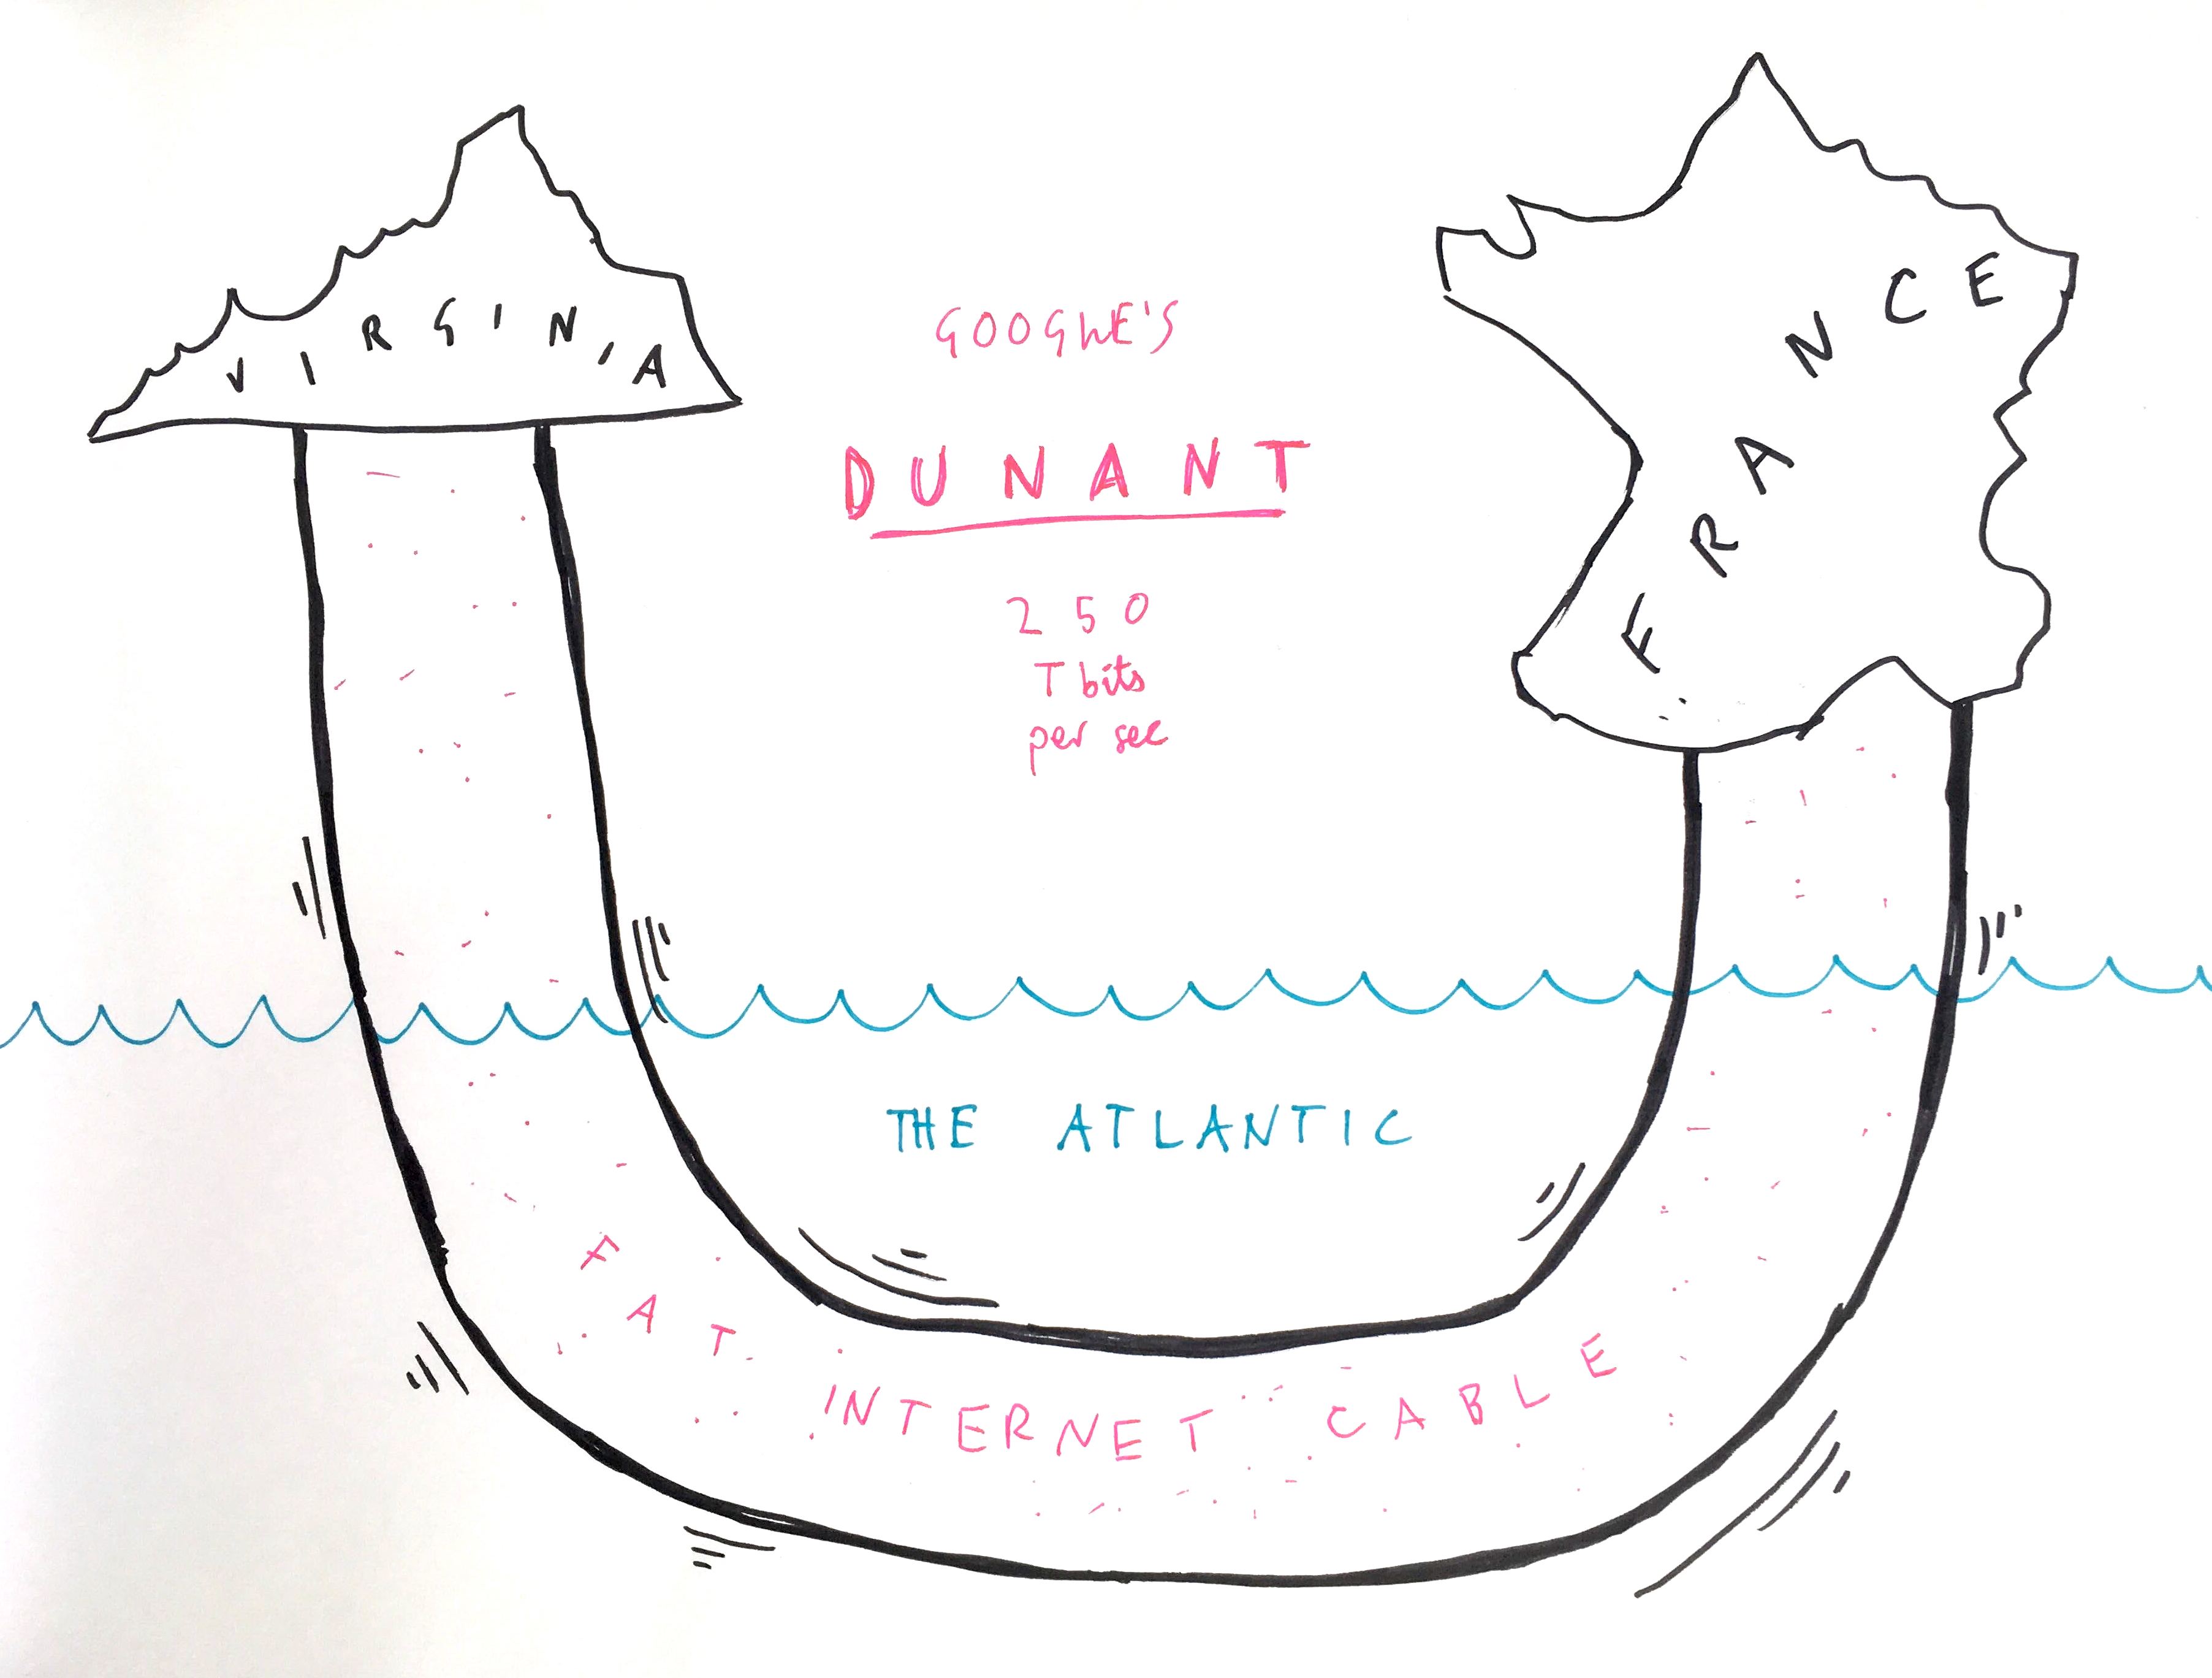 VIRGINIA
FRANCE
GOOGLE'S
DUNANT
250
T bits
per sec
THE ATLANTIC
FAT INTERNET CABLE